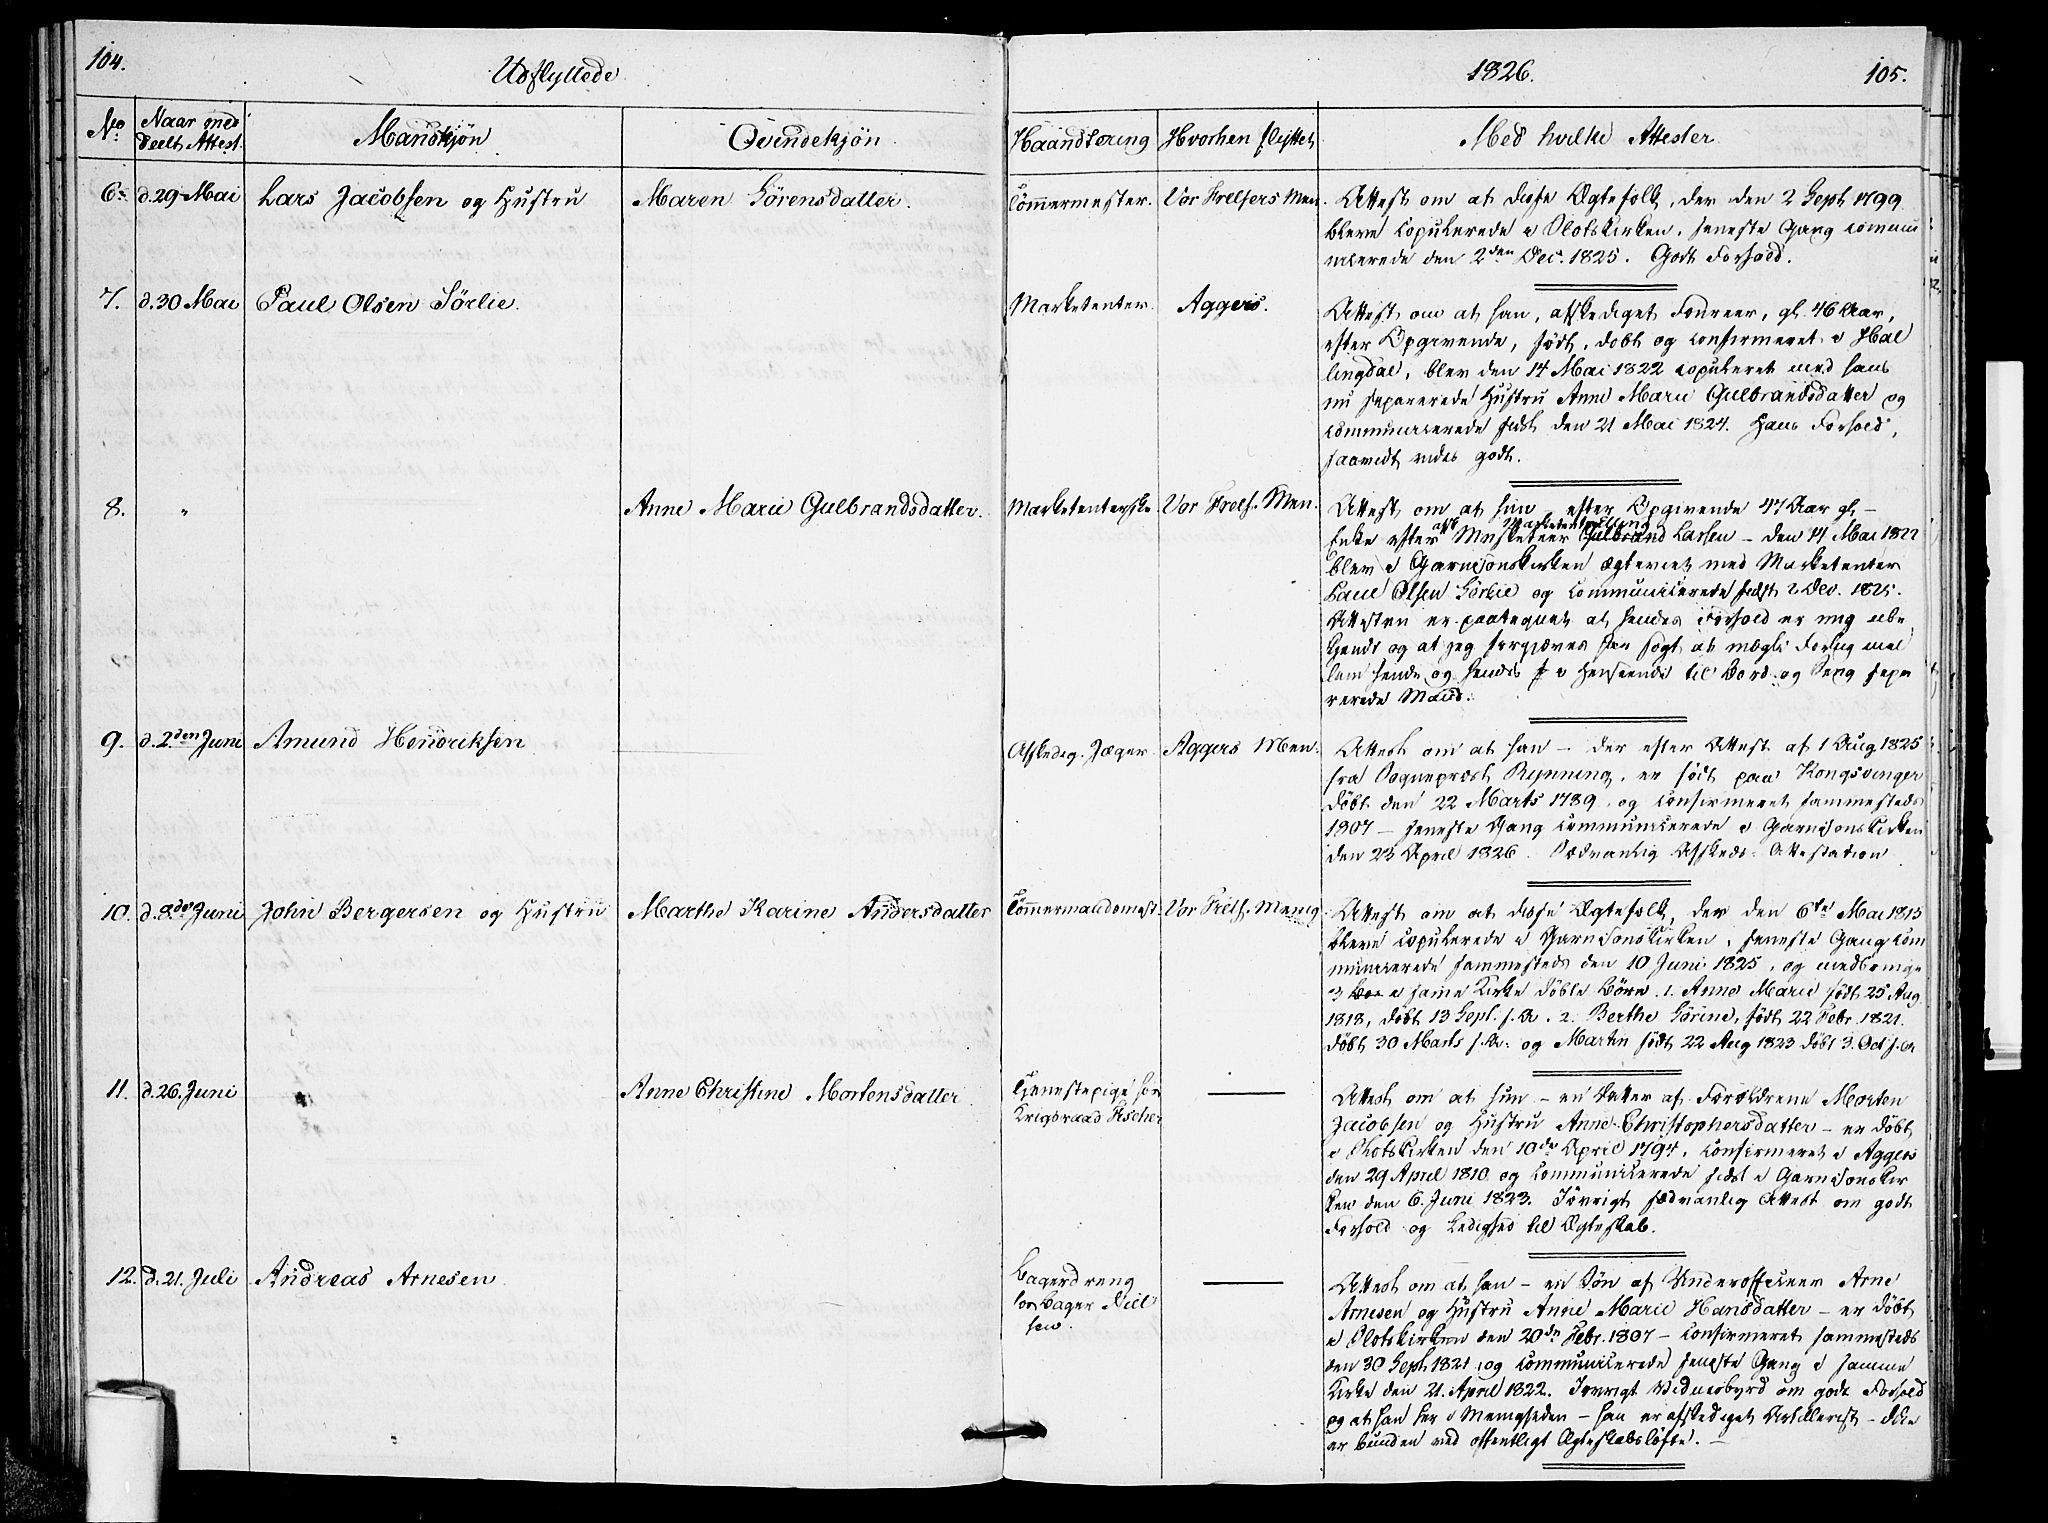 104.
Udflyttede
1826.
105.
No
Naar med
deelt Attest.
Mandkjøn
Qvindekjøn
Haandtering
Hvorhen flyttet
Med hvilke Attester
6. d. 29 Mai Lars Jacobsen og Hustru Maren Sörensdatter. Tömmermester. Vor Frelsers Men.
Attest om at disse Ægtefolk, der den 2 Sept 1799
bleve copulerede i Slotskirken, seneste Gang commu
nicerede den 2den Dec. 1825. Godt Forhold.
7. d. 30 Mai Paul Olsen Sörlie. Marketenter. Aggers.
Attest om at han, afskediget Foureer, gl. 46 Aar,
efter Opgivende, födt, döbt og confirmeret i Hal
lingdal, blev den 14 Mai 1822 copuleret med hans
nu separerede Hustru Anne Marie Gulbrandsdatter og
communicerede sidst den 21 Mai 1824. Hans Forhold,
saavidt vides godt.
8. " Anne Marie Gulbrandsdatter. Marketenterske Vor Frels. Men.
Attest om at hun efter Opgivende 47 Aar gl -
Enke efter Musketeer Gulbrand Larsen - den 14 Mai 1822
blev i Garnisonskirken ægteviet med Marketenter
Paul Olsen Sörlie og communicerede sidst 2 Dec. 1825.
Attesten er paategnet at hendes Forhold er mig ube
kjendt og at jeg forgjæves har søgt at mægle Forlig mel
lem hende og hendes i Henseende til Bord og Seng sepa
rerede Mand.
9. d. 2den Juni Amund Hendriksen Afskedig. Jæger Aggers Men.
Attest om at han - der efter Attest af 1 Aug 1825
fra Sogneprest Rynning, er födt paa Kongsvinger
döbt den 22 Marts 1789 og confirmeret sammesteds
1807 - seneste Gang communicerede i Garnisonskirken
den 23 April 1826. Sædvanlig Afskeds-Attestation
10. d. 8de Juni John Bergersen og Hustru Marthe Karine Andersdatter Tömmermandsmest. Vor Frels. Menig
Attest om at disse Ægtefolk, der den 6te Mai 1815
bleve copulerede i Garnisonskirken, seneste Gang com
municerede sammesteds den 10 Juni 1825, og medbringe
3 i samme Kirke döbte Börn. 1. Anne Marie födt 25 Aug
1818, döbt 13 Sept. s. A. 2. Berthe Sörine, födt 22 Febr. 1821.
döbt 30 Marts s. A. og Martin födt 22 Aug 1823 döbt 3. Oct s. A
11. d. 26. Juni Anne Christine Mortensdatter Tjenestepige hos
Krigsraad Fischer
Attest om at hun - en Datter af Forældrene Morten
Jacobsen og Hustru Anne Christophersdatter - er döbt
i Slotskirken den 10de April 1794, confirmeret i Aggers
den 29 April 1810 og communicerede sidst i Garnisonskir
ken den 6. Juni 1823. Iövrigt sædvanlig Attest om godt
Forhold og Ledighed til Ægteskab.
12. d. 21. Juli Andreas Arnesen Bagerdreng
hos Bager Niel
sen.
Attest om at han - en Sön af Underofficeer Arne
Arnesen og Hustru Anne Marie Hansdatter - er döbt
i Slotskirken den 20de Febr. 1807 - confirmeret sammesteds
den 30 Sept. 1821 og communicerede seneste Gang i samme
Kirke den 21. April 1822. Iövrigt Vidnesbyrd om godt Forhold
og at han her i Menigheden - han er afskediget Artillerist - ikke
er bunden ved offentligt Ægteskabslöfte. -